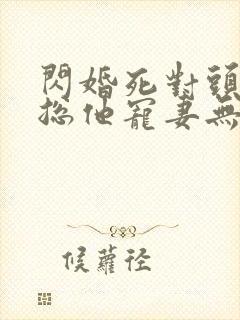 閃婚死對頭
總他寵妻無
候蘿径